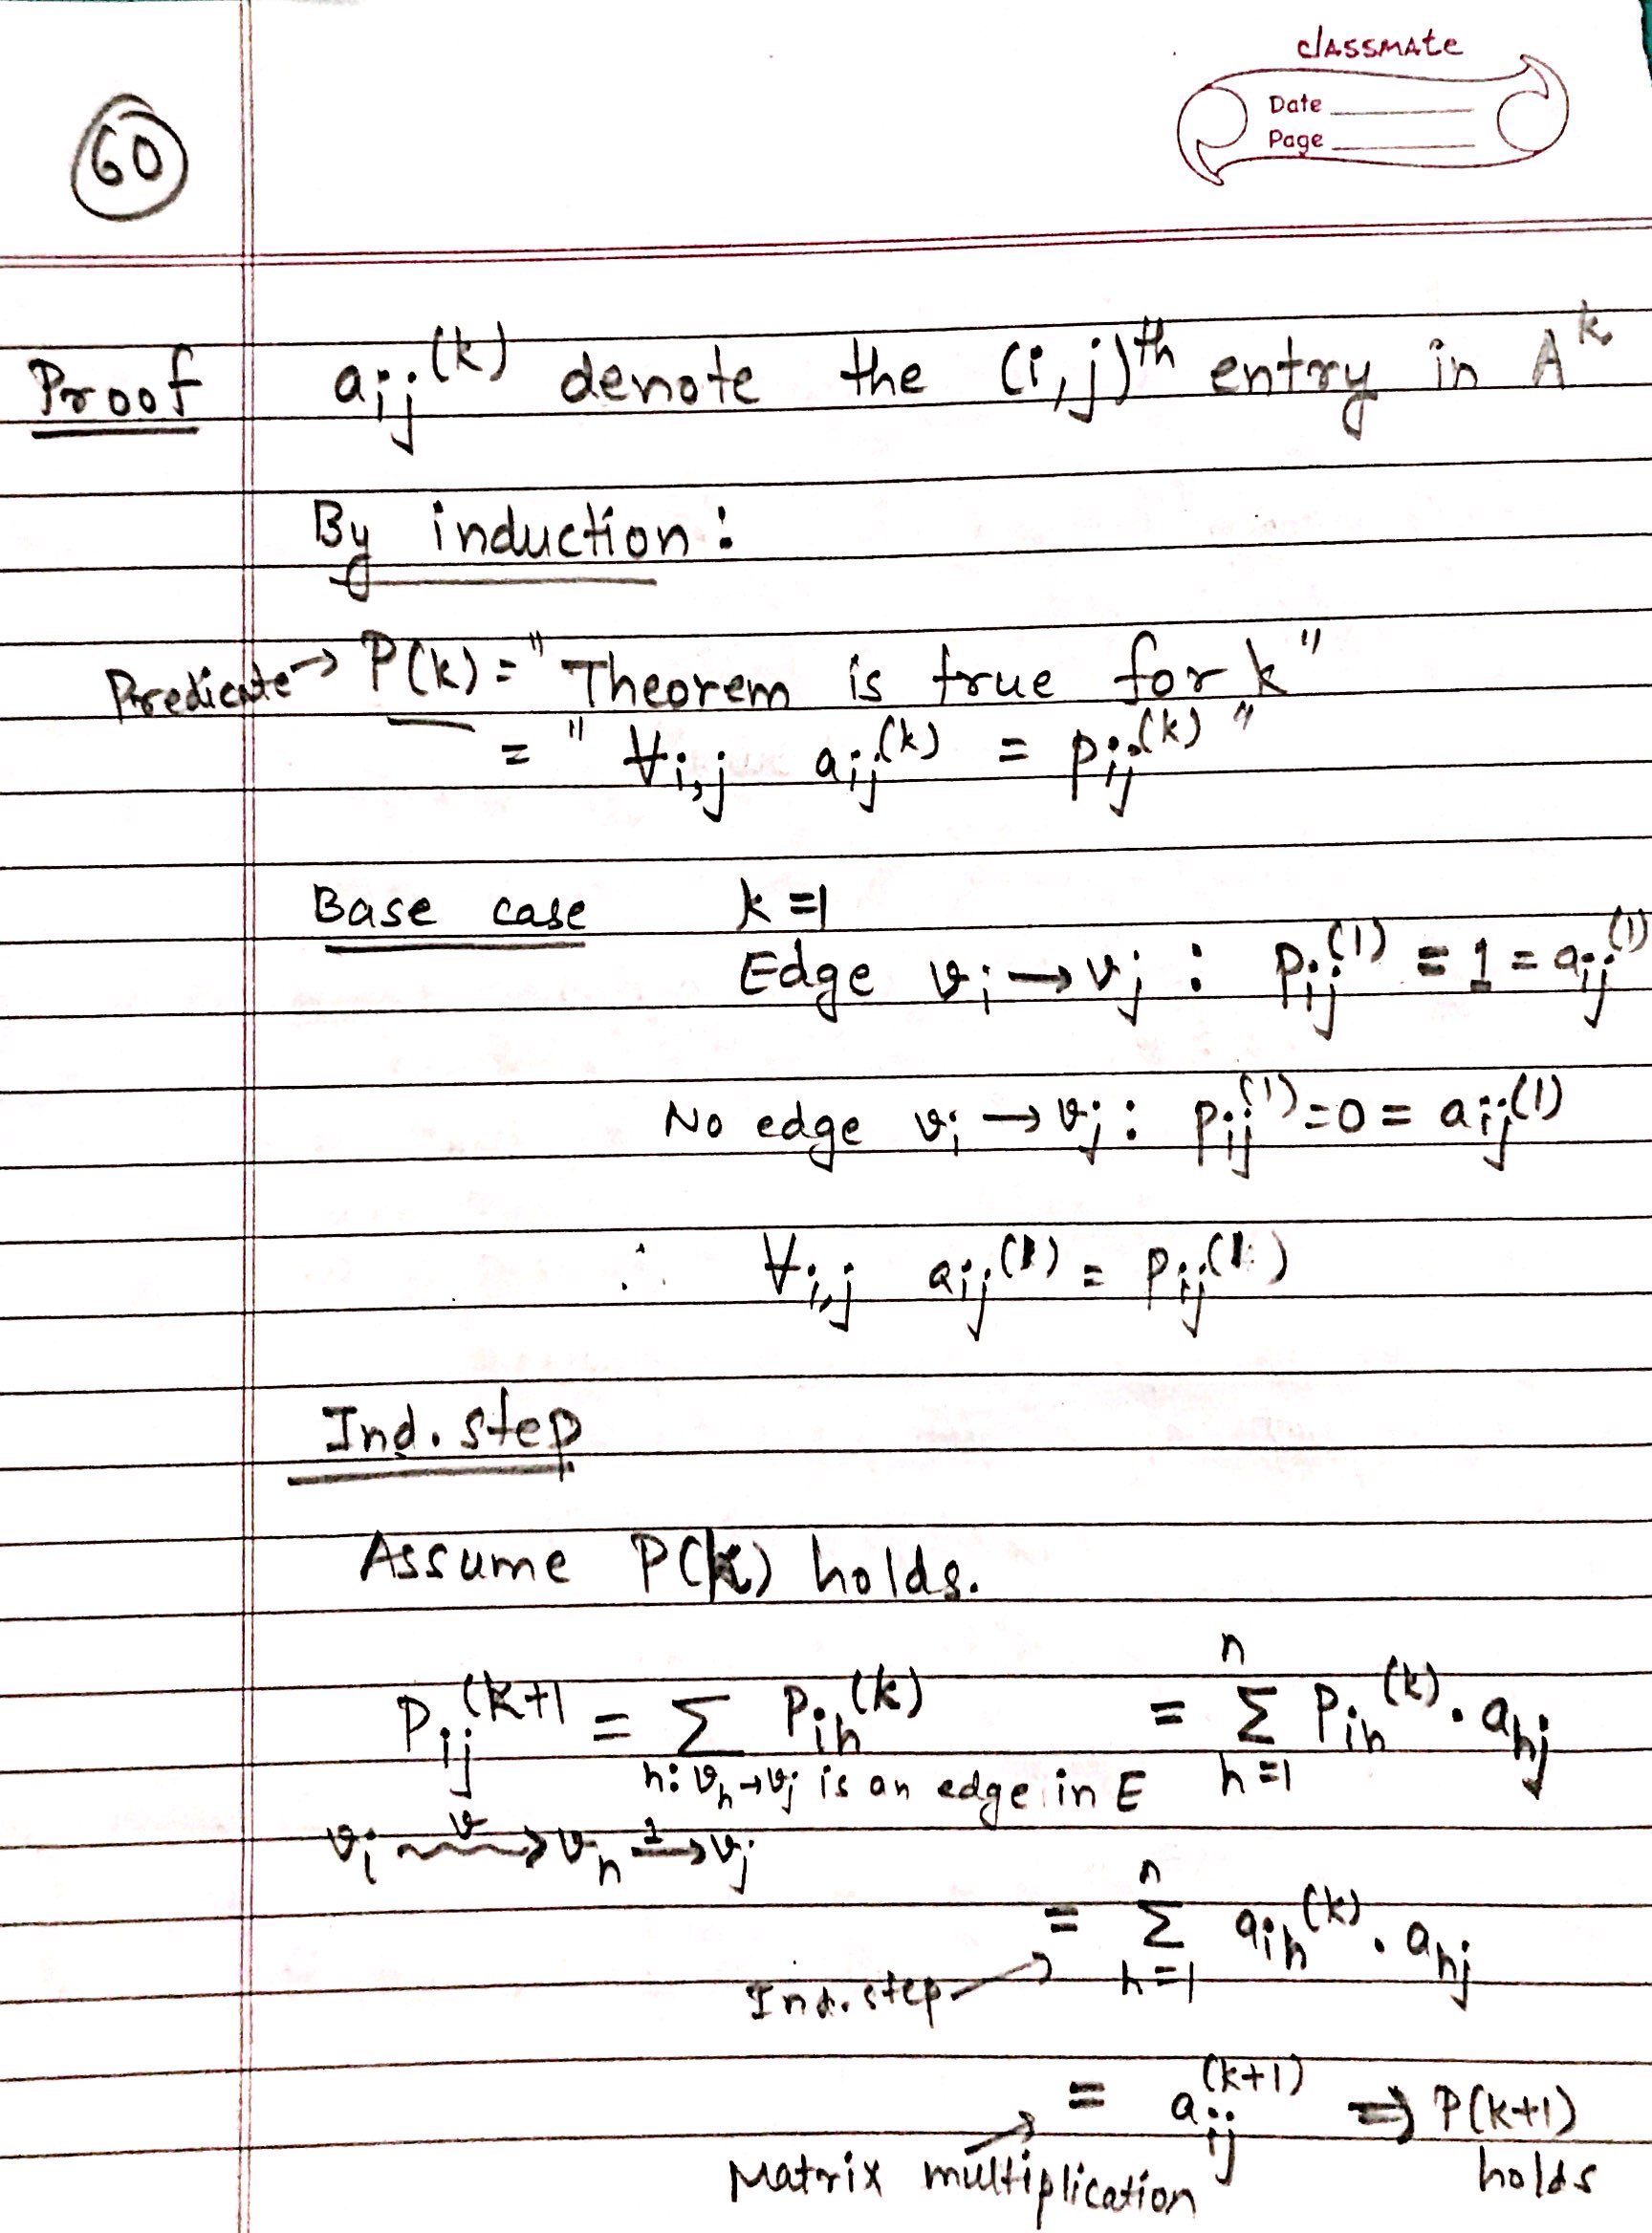 classmate
Date
Page
60
Proof aij(k) denote the (i,j)th entry in A^k
By induction:
Predicate → P(k) = "Theorem is true for k"
= "∀i,j aij(k) = pij(k)"
Base case k=1
Edge vi → vj : pij(1) = 1 = aij(1)
No edge vi → vj : pij(1) = 0 = aij(1)
∴ ∀i,j aij(1) = pij(1)
Ind. step
Assume P(k) holds.
Pij(k+1 = Σ Pih(k) = Σ Pih(k) · ahj
h: vh→vj is an edge in E n h=1
vi ⇝ v vh →1 vj
= Σ n h=1 aih(k) · ahj
Ind. step
= aij(k+1) ⇒ P(k+1)
Matrix multiplication holds